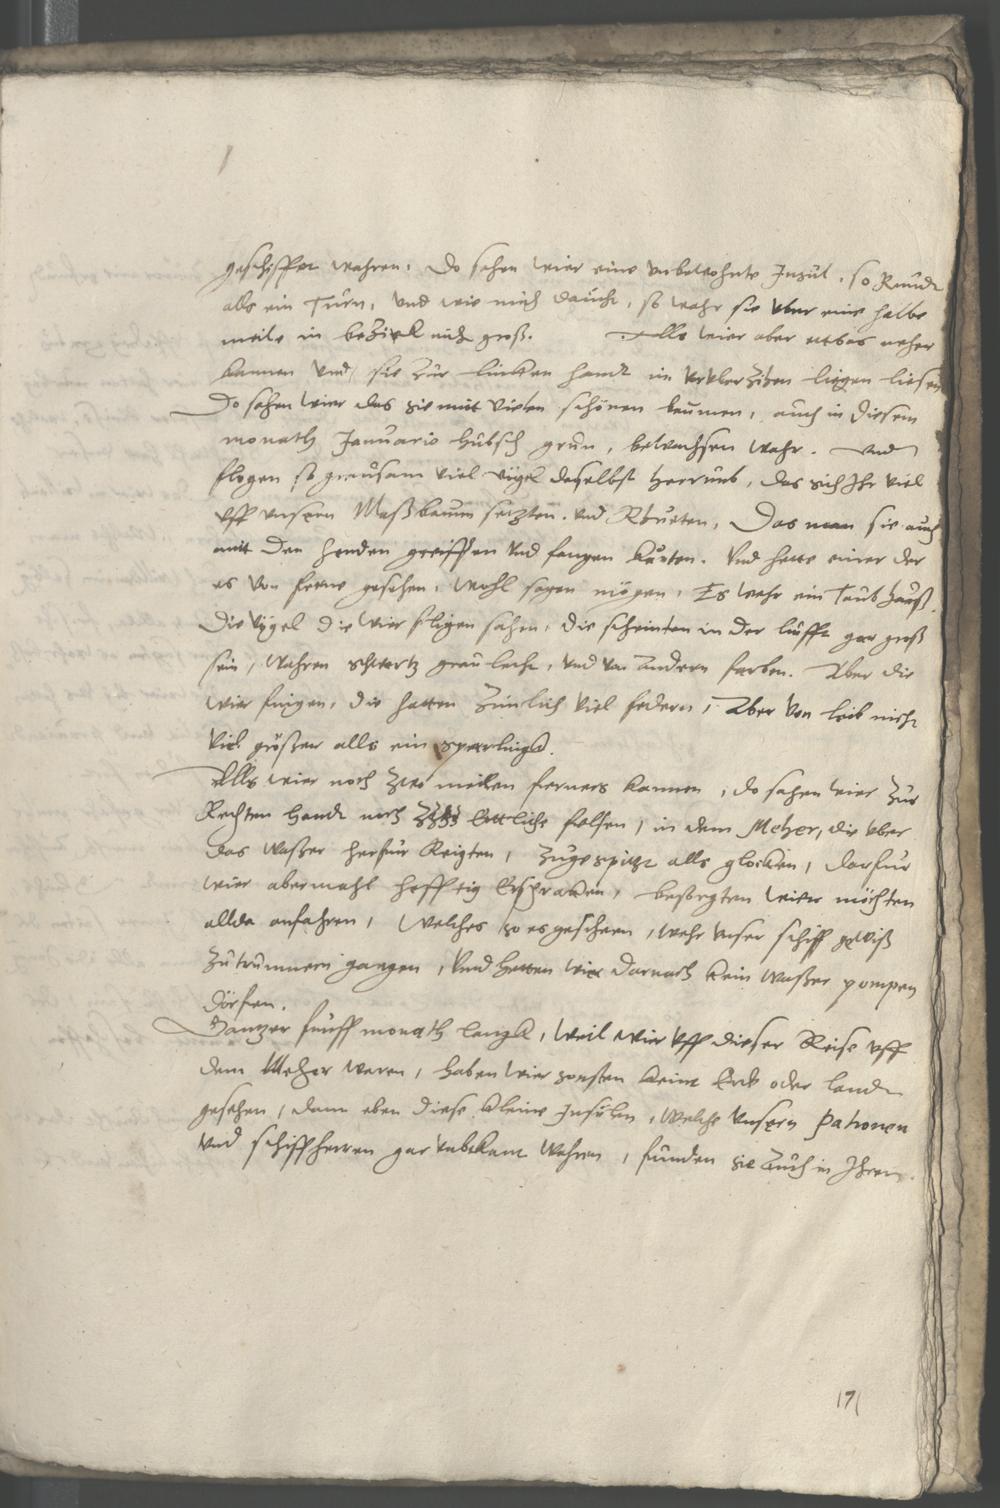 geschiffet wahren. Do sahen wier eine unbewohnte Insul, so Rundt
alls ein Turn, und wie mich daucht, so wahr sie uber eine halbe
meile in bezirk nicht groß. Alls wier aber etwas neher
kamen und sie zur lincken handt im liegen liesen
Do sahen wier das sie mitt vielen schönen beumen, auch in diesem
monath Januario hubsch grun, bewachsen wahr. Und
flogen so grausam viel vögel daselbst herrumb, das sich Ihr viel
uff unsern Mastbaum setzten und Rhueten, Das man sie auch
mitt den henden greiffen und fangen kunten. Und hette einer der
es von ferne gesehen, wohl sagen mögen, Es wehr ein Taubhauß.
Die vögel die wier fligen sahen, die scheinten in der lufft gar groß
sein, wahren schwartz graulecht, und von andern farben. Aber die
wier fingen, die hatten zimlich viel federn, Aber von leib nicht
viel größer alls ein sperlingk.
Alls wier noch zwo meilen ferners kamen, do sahen wier zur
Rechten handt noch ettliche felsen, in dem Meher, die uber
das waßer herfur Reigten, zugespitzt alls glocken, darfur
wier abermahl hefftig erschracken, besorgten wier möchten
allda anfahren, Welches so es geschehen, wehr unser schiff gewiß
zu trummern gangen, Und hetten wier darnach kein waßer pompen
dörfen.
Gantzer funff monath langk, weil wier uff dieser Reise uff
dem Meher waren, haben wier sonsten keine Erde oder landt
gesehen, dann eben diese kleine Insulen, welche unsern Patronen
und schiffherren gar unbekant wahren, funden sie auch in Ihren
171